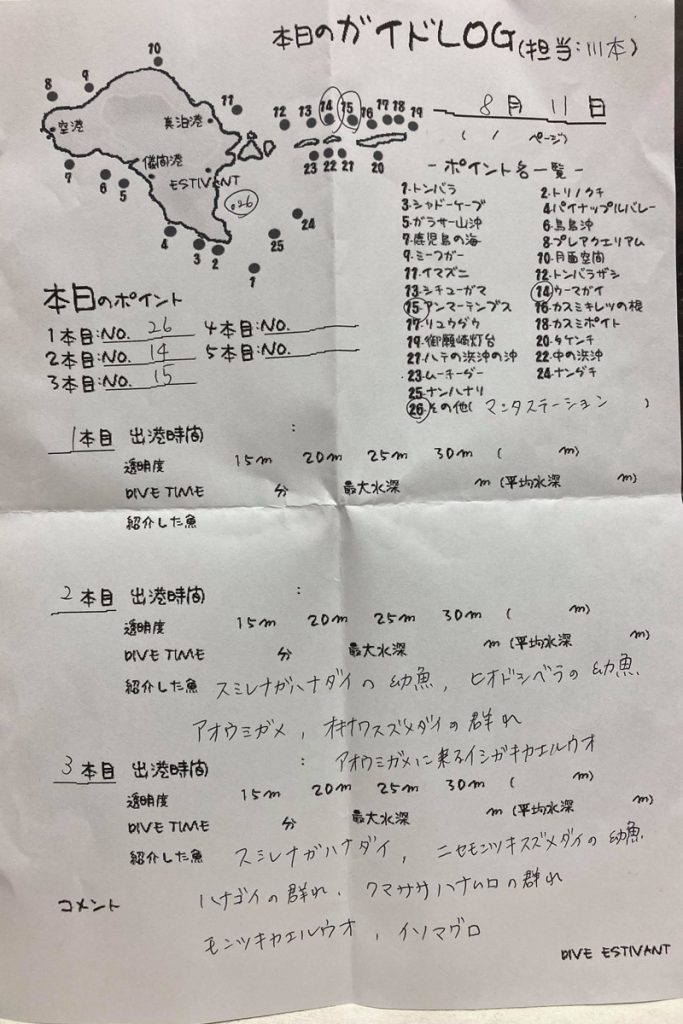 本日のガイドLOG(担当:川本)
8月 11日
( / ページ)
10
9
8
空港
真泊港
11
12 13 14 15 16 17 18 19
儀間港
23 22 21 20
7
6
5
ESTIVANT
26
24
25
4 3 2
1
-ポイント名一覧-
1.トンバラ 2.トリノクチ
3.シャドーケーブ 4.パイナップルバレー
5.ガラサー山沖 6.鳥島沖
7.鹿児島の海 8.プレアクエリアム
9.ミーフガー 10.月面空間
11.イマズニ 12.トンバラザシ
13.シチューガマ 14.ウーマガイ
15.アンマーテンプス 16.カスミキレツの根
17.リュウダウ 18.カスミポイント
19.御願崎灯台 20.タケンチ
21.ハテの浜沖の沖 22.中の浜沖
23.ムーチーダー 24.ナングチ
25.ナンハナリ
26.その他(マンタステーション )
本日のポイント
1本目:NO. 26 4本目:NO.
2本目:NO. 14 5本目:NO.
3本目:NO. 15
1本目 出港時間 :
透明度 15m 20m 25m 30m ( m)
DIVE TIME 分 最大水深 m (平均水深 m)
紹介した魚
2本目 出港時間 :
透明度 15m 20m 25m 30m ( m)
DIVE TIME 分 最大水深 m (平均水深 m)
紹介した魚 スミレナガハナダイの幼魚, ヒオドシベラの幼魚
アオウミガメ, オキナワスズメダイの群れ
アオウミガメに来るイシガキカエルウオ
3本目 出港時間 :
透明度 15m 20m 25m 30m ( m)
DIVE TIME 分 最大水深 m (平均水深 m)
紹介した魚 スミレナガハナダイ, ニセモンツキスズメダイの幼魚
ハナゴイの群れ, クマササハナムロの群れ
コメント
モンツキカエルウオ, イソマグロ
DIVE ESTIVANT